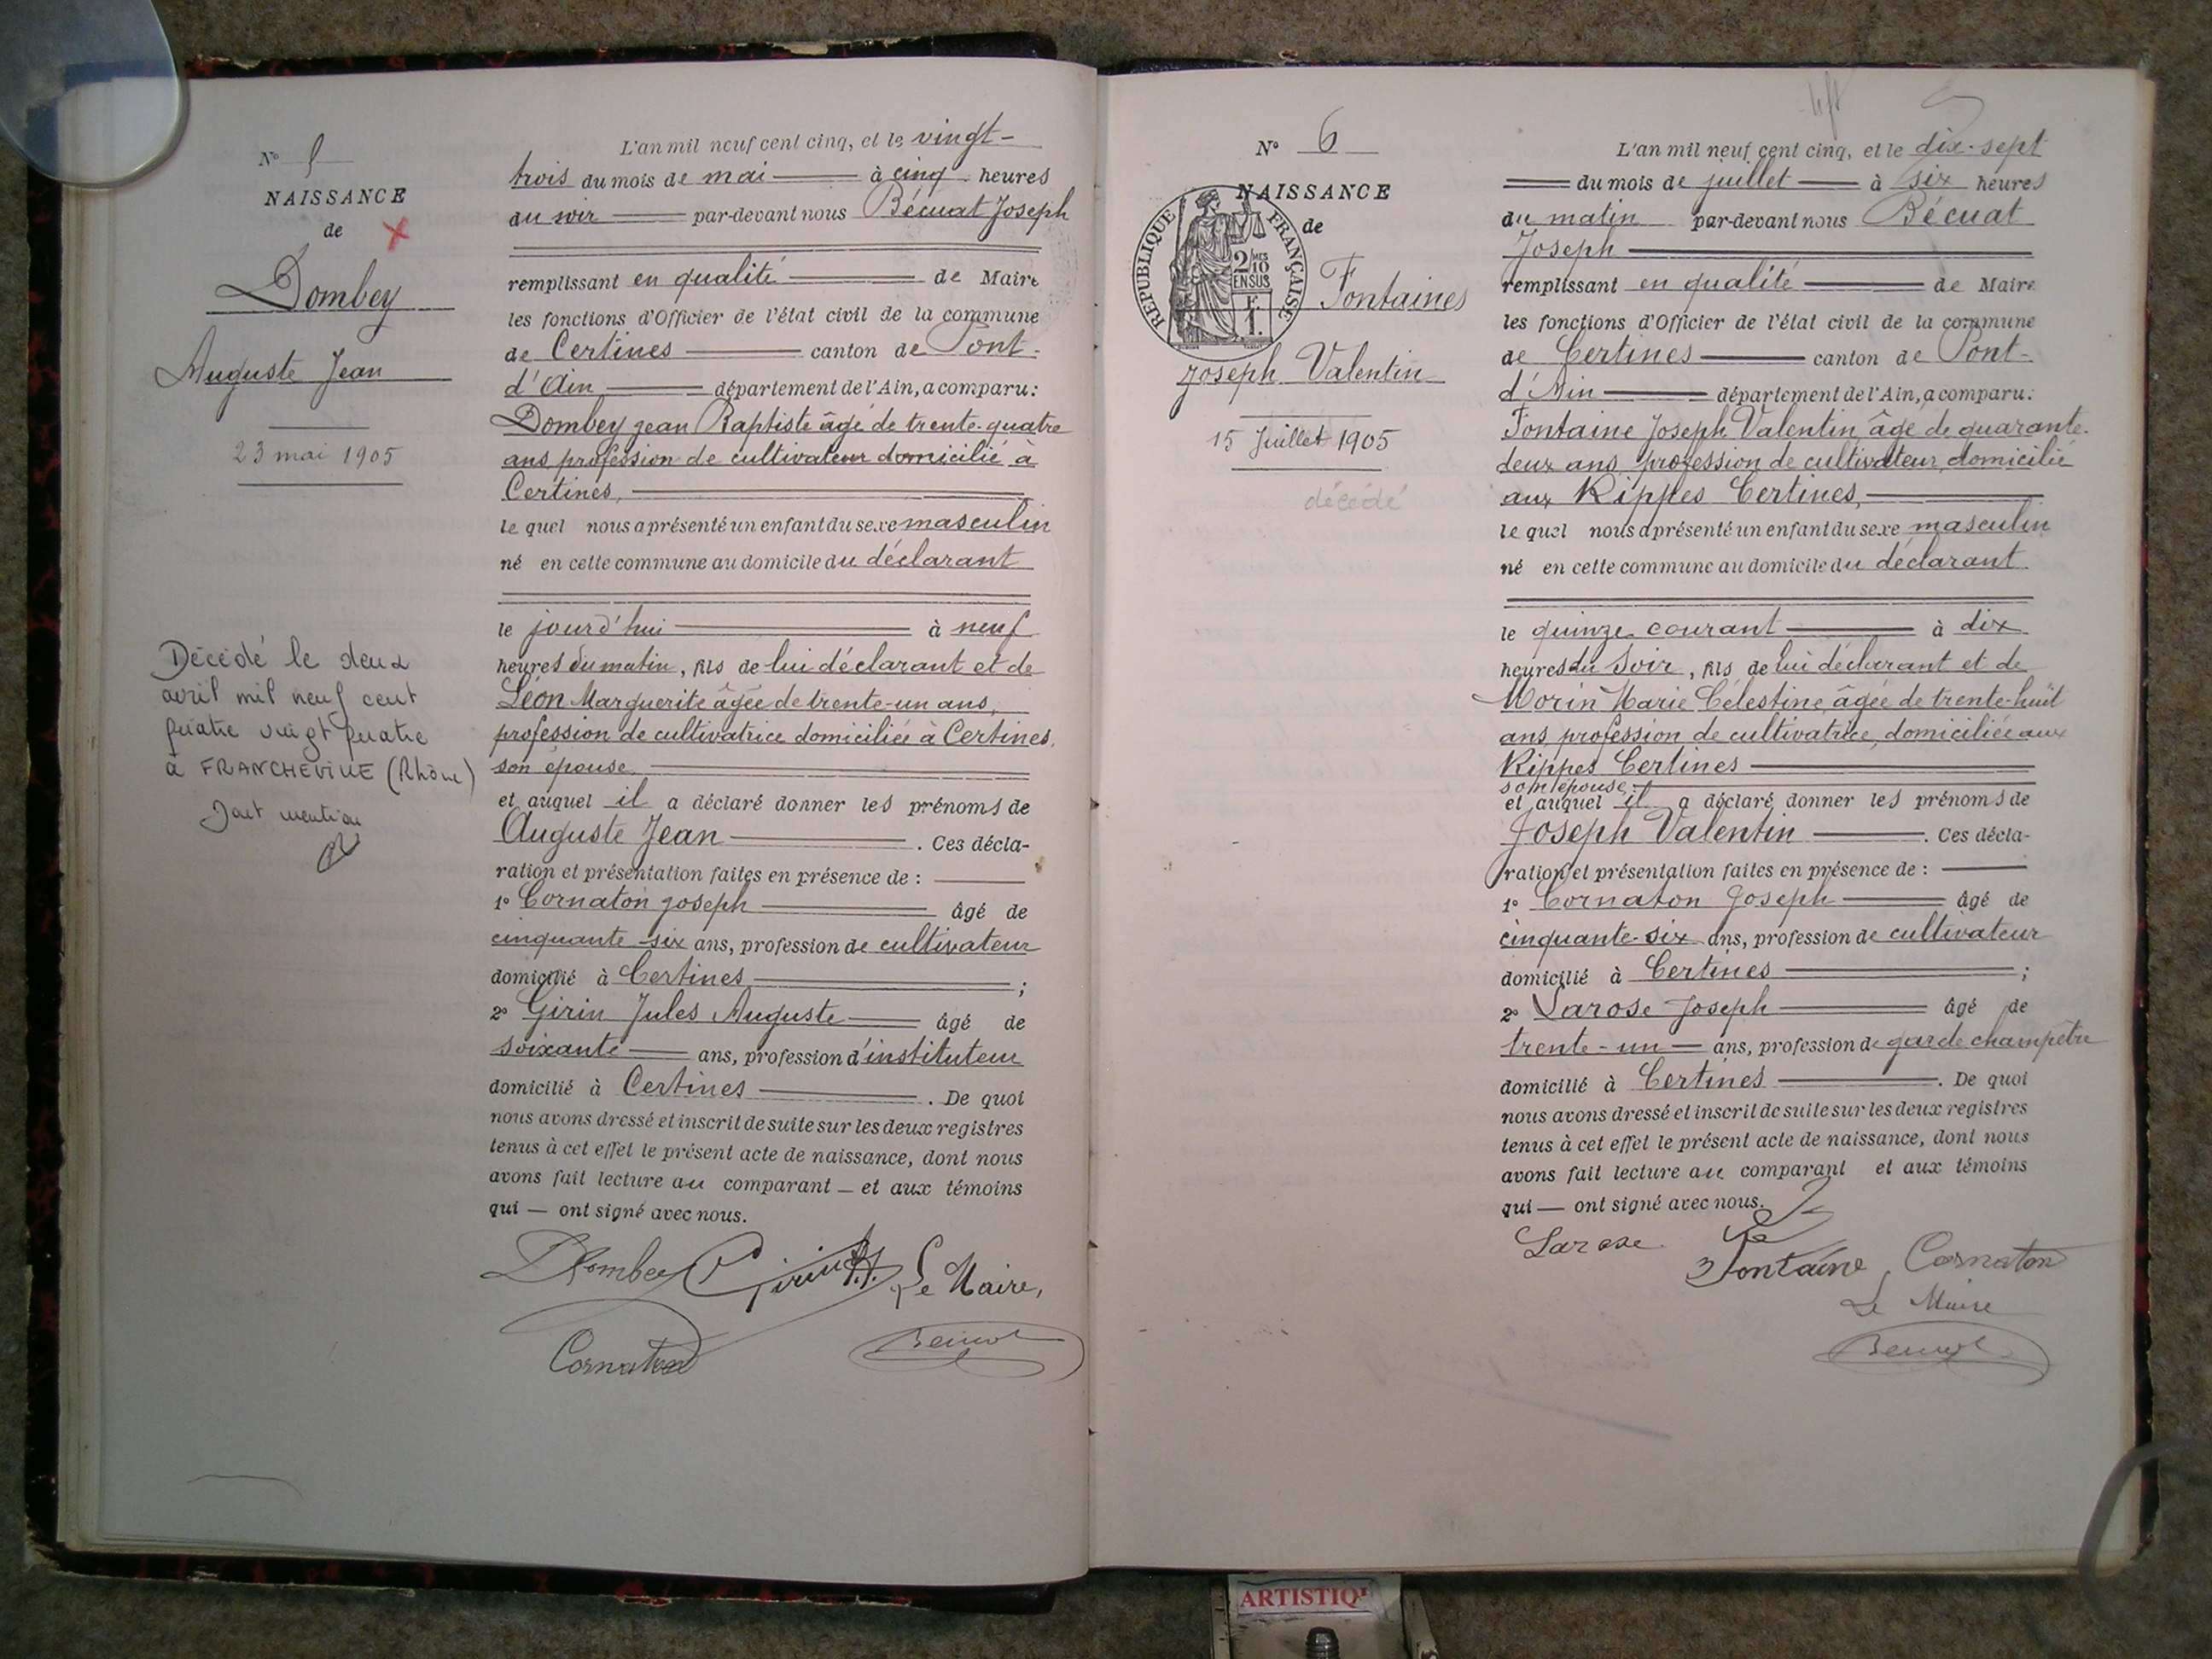 N° 5
NAISSANCE
de
Dombey
Auguste Jean
23 mai 1905
Décédé le deux
avril mil neuf cent
quatre vingt quatre
à FRANCHEVILLE (Rhône)
Dont mention
L'an mil neuf cent cinq, et le vingt-
trois du mois de mai à cinq heures
du soir par-devant nous Bécuat Joseph
remplissant en qualité de Maire
les fonctions d'Officier de l'état civil de la commune
de Certines canton de Pont-
d'Ain département de l'Ain, a comparu:
Dombey Jean Baptiste âgé de trente-quatre
ans profession de cultivateur domicilié à
Certines,
le quel nous a présenté un enfant du sexe masculin
né en cette commune au domicile du déclarant
le jourd'hui à neuf
heures du matin, fils de lui déclarant et de
Léon Marguerite âgée de trente-un ans,
profession de cultivatrice domiciliée à Certines,
son épouse
et auquel il a déclaré donner les prénoms de
Auguste Jean. Ces décla-
ration et présentation faites en présence de :
1° Cornaton Joseph âgé de
cinquante-six ans, profession de cultivateur
domicilié à Certines ;
2° Girin Jules Auguste âgé de
soixante ans, profession d'instituteur
domicilié à Certines. De quoi
nous avons dressé et inscrit de suite sur les deux registres
tenus à cet effet le présent acte de naissance, dont nous
avons fait lecture au comparant — et aux témoins
qui — ont signé avec nous.
Dombey Girin Le Maire,
Cornaton Bécuat
N° 6
NAISSANCE
de
REPUBLIQUE FRANÇAISE
2/10 MES
EN SUS
F.
1.
Fontaines
Joseph Valentin
15 Juillet 1905
décédé
L'an mil neuf cent cinq, et le dix-sept
du mois de juillet à six heures
du matin par-devant nous Bécuat
Joseph
remplissant en qualité de Maire
les fonctions d'Officier de l'état civil de la commune
de Certines canton de Pont-
d'Ain département de l'Ain, a comparu:
Fontaine Joseph Valentin âgé de quarante-
deux ans profession de cultivateur domicilié
aux Rippes Certines,
le quel nous a présenté un enfant du sexe masculin
né en cette commune au domicile du déclarant
le quinze courant à dix
heures du soir, fils de lui déclarant et de
Morin Marie Célestine âgée de trente-huit
ans, profession de cultivatrice, domiciliée aux
Rippes Certines
son épouse
et auquel il a déclaré donner les prénoms de
Joseph Valentin. Ces décla-
ration et présentation faites en présence de :
1° Cornaton Joseph âgé de
cinquante-six ans, profession de cultivateur
domicilié à Certines ;
2° Larose Joseph âgé de
trente-un ans, profession de garde champêtre
domicilié à Certines. De quoi
nous avons dressé et inscrit de suite sur les deux registres
tenus à cet effet le présent acte de naissance, dont nous
avons fait lecture au comparant et aux témoins
qui — ont signé avec nous.
Larose Fontaine Cornaton
Le Maire
Bécuat
ARTISTIQ